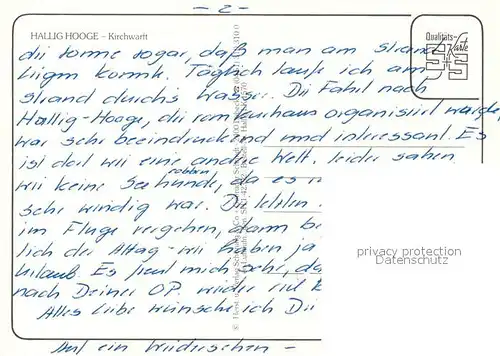 - 2 -
HALLIG HOOGE – Kirchwarft
Qualitäts-Karte
die Sonne sogar, daß man am Strand
liegen konnte. Täglich laufe ich am
Strand durchs Wasser. Die Fahrt nach
Hallig-Hooge, die vom Kurhaus organisiert wurde,
war sehr beeindruckend und interessant. Es
ist dort wie eine andere Welt. Leider sahen
wir keine Seehunde, da es
robben
sehr windig war. Die letzten
im Fluge vergehen, dann be
lich der Alltag - wir haben ja
Urlaub. Es freut mich sehr, da
nach Deiner OP wieder
Alles Liebe wünsche ich Dir
Auf ein Wiedersehen -
privacy protection
Datenschutz